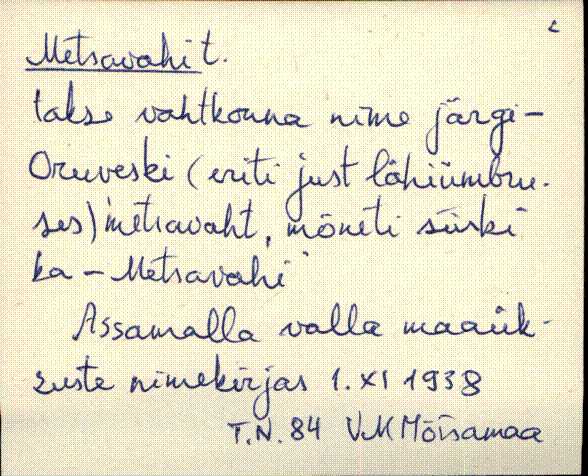 Metsavahi t.
takse vahtkonna nime järgi -
Oruveski (eriti just lähiümbru-
ses) metsavaht, mõneti siiski
ka - Metsavahi"
Assamalla valla maaük-
suste nimekirjas 1. XI 1938
T.N. 84 V.M Mõisamaa